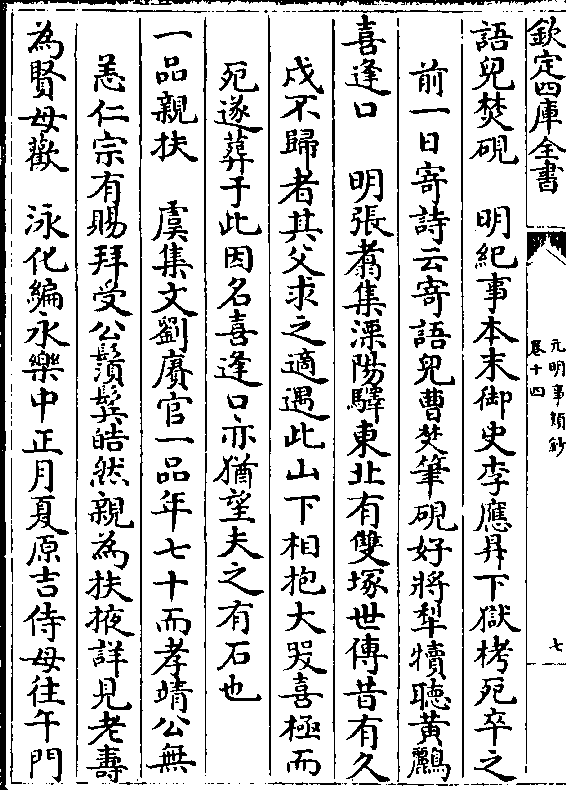 欽定四庫全書
元明事類鈔
卷十四
七
語兒焚硯　明紀事本末御史李應昇下獄拷死卒之
前一日寄詩云寄語兒曹焚筆硯好將犁犢聽黄鸝
喜逢口　明張翥集溧陽驛東北有雙塚世傳昔有久
戍不歸者其父求之適遇此山下相抱大哭喜極而
死遂葬于此因名喜逢口亦猶望夫之有石也
一品親扶　虞集文劉賡官一品年七十而孝靖公無
恙仁宗有賜拜受公鬚鬓皓然親為扶掖詳見老壽
為賢母歡　泳化編永樂中正月夏原吉侍母往午門